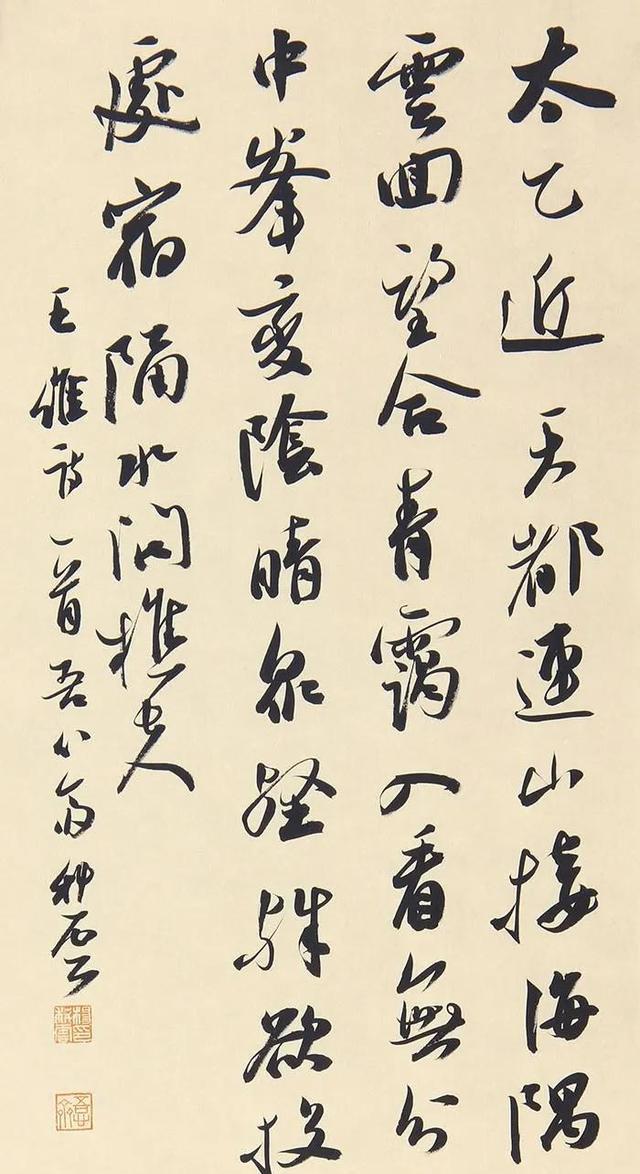 太乙近天都連山接海隅
雲囬望合青靄入看無分
中峯變陰晴眾壑殊欲投
處宿隔水問樵夫
王維詩一首吾